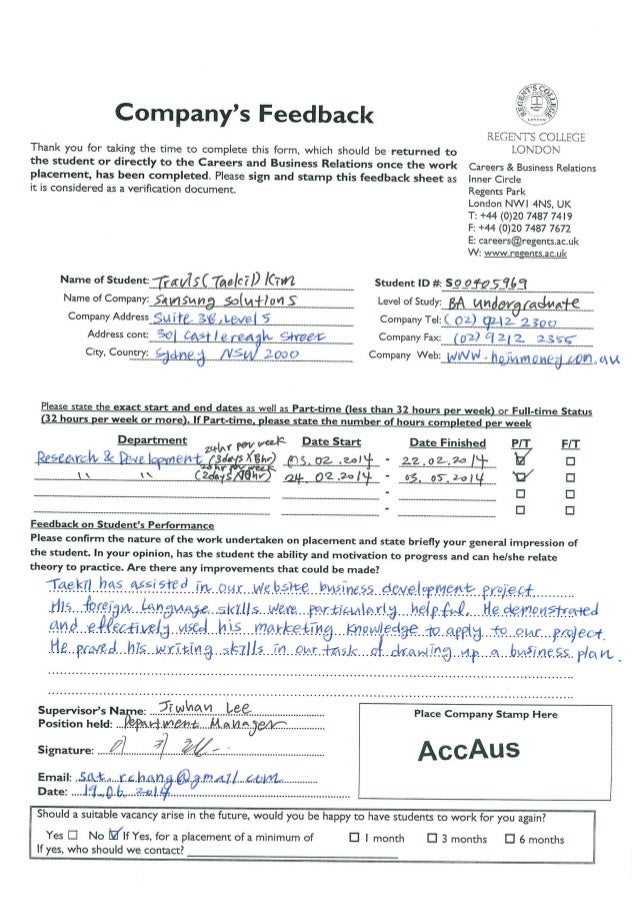 REGENT'S COLLEGE
LONDON
Company's Feedback
REGENT'S COLLEGE
LONDON
Thank you for taking the time to complete this form, which should be returned to
the student or directly to the Careers and Business Relations once the work
placement, has been completed. Please sign and stamp this feedback sheet as
it is considered as a verification document.
Careers & Business Relations
Inner Circle
Regents Park
London NW1 4NS, UK
T: +44 (0)20 7487 7419
F: +44 (0)20 7487 7672
E: careers@regents.ac.uk
W: www.regents.ac.uk
Name of Student: Travis(Taekil) Kim
Student ID #: S00405969
Name of Company: Samsung solutions
Level of Study: BA undergraduate
Company Address Suite 38, Level 5
Company Tel: (02) 9212 2300
Address cont: 301 Castlereagh Street
Company Fax: (02) 9212 2355
City, Country: Sydney NSW 2000
Company Web: www.hoinmoney.con.au
Please state the exact start and end dates as well as Part-time (less than 32 hours per week) or Full-time Status
(32 hours per week or more). If Part-time, please state the number of hours completed per week
Department Date Start Date Finished P/T F/T
24hr per week
Research & Development (3days X 8hr) 03.02.2014 - 22.02.2014
20hr per week
" " (2days X 10hr) 24 02.2014 - 05.05.2014
-
-
Feedback on Student's Performance
Please confirm the nature of the work undertaken on placement and state briefly your general impression of
the student. In your opinion, has the student the ability and motivation to progress and can he/she relate
theory to practice. Are there any improvements that could be made?
Taekil has assisted in our website business development project.
His foreign language skills were particularly helpful. He demonstrated
and effectively used his marketing knowledge to apply to our project.
He proved his writing skills in our task of drawing up a business plan.
Supervisor's Name: Jiwhan Lee
Position held: Department Manager
Signature:
Place Company Stamp Here
AccAus
Email: sat.rchang@gmail.com
Date: 19.06.2014
Should a suitable vacancy arise in the future, would you be happy to have students to work for you again?
Yes No If Yes, for a placement of a minimum of 1 month 3 months 6 months
If yes, who should we contact?